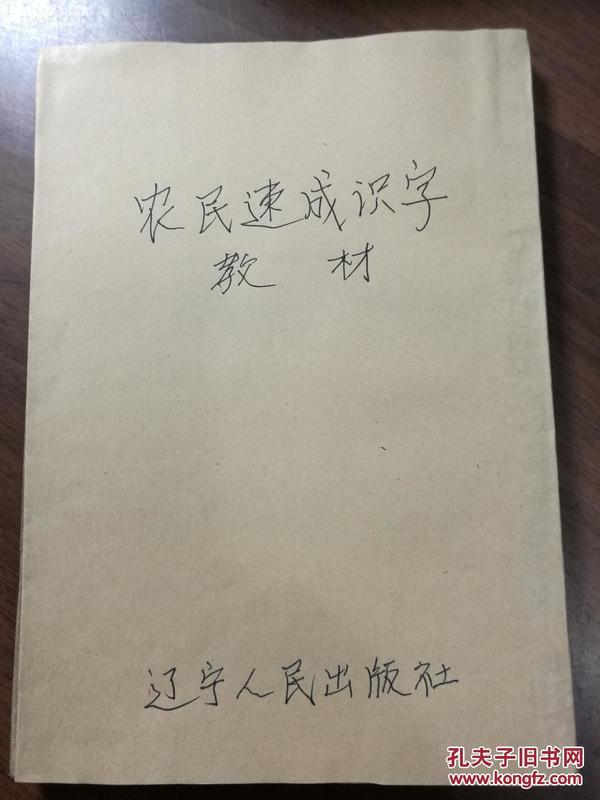 农民速成识字
教 材
辽宁人民出版社
孔夫子旧书网
www.kongfz.com